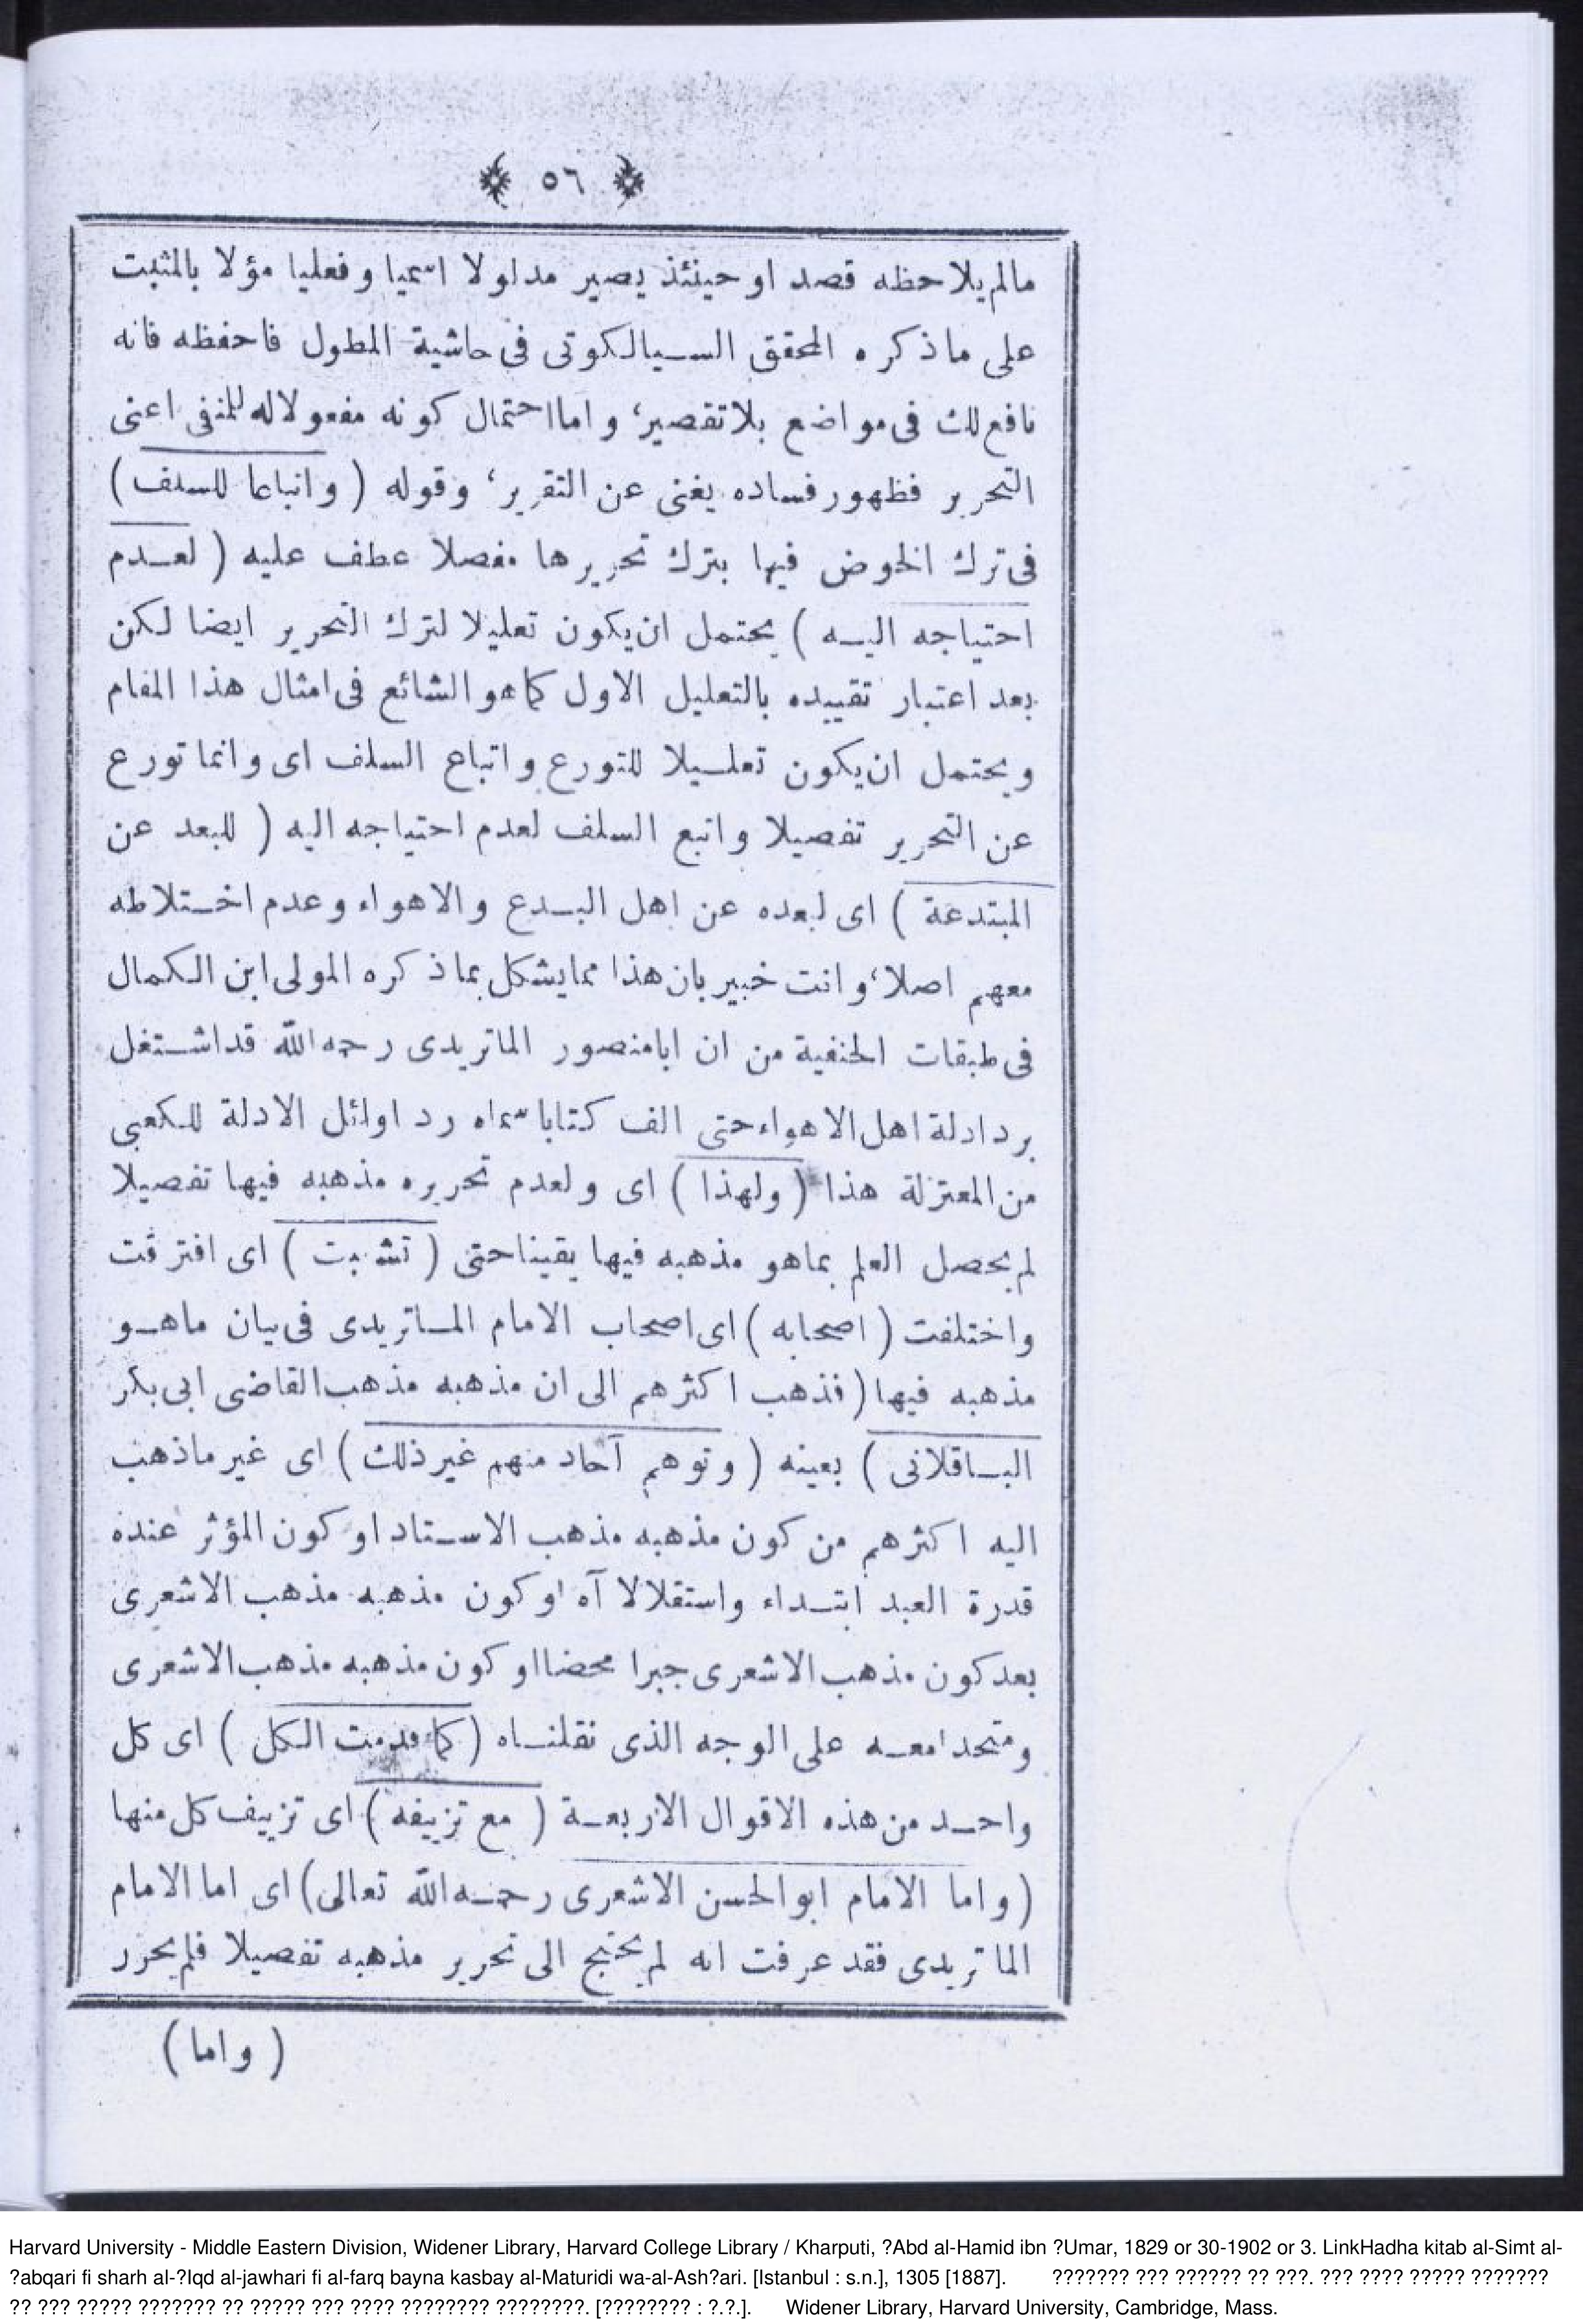 ﴿ ٥٦ ﴾
مالم يلاحظه قصد او حينئذ يصير مدلولا اسميا وفعليا مؤلا بالمثبت
على ما ذكره المحقق السيالكوتى فى حاشية المطول فاحفظه فانه
نافع لك فى مواضع بلا تقصير، واما احتمال كونه مفعولا له للمنفى اعنى
التحرير فظهور فساده يغنى عن التقرير، وقوله ( واتباعا للسلف )
فى ترك الخوض فيها بترك تحريرها مفصلا عطف عليه ( لعدم
احتياجه اليه ) يحتمل ان يكون تعليلا لترك التحرير ايضا لكن
بعد اعتبار تقييده بالتعليل الاول كما هو الشائع فى امثال هذا المقام
ويحتمل ان يكون تعليلا للتورع واتباع السلف اى وانما تورع
عن التحرير تفصيلا واتبع السلف لعدم احتياجه اليه ( للبعد عن
المبتدعة ) اى لبعده عن اهل البدع والاهواء وعدم اختلاطه
معهم اصلا، وانت خبير بان هذا مما يشكل بما ذكره المولى ابن الكمال
فى طبقات الحنفية من ان ابا منصور الماتريدى رحمه الله قد اشتغل
برد ادلة اهل الاهواء حتى الف كتابا سماه رد اوائل الادلة للكعبى
من المعتزلة هذا ( ولهذا ) اى ولعدم تحريره مذهبه فيها تفصيلا
لم يحصل العلم بما هو مذهبه فيها يقينا حتى ( تشبت ) اى افترقت
واختلفت ( اصحابه ) اى اصحاب الامام الماتريدى فى بيان ما هو
مذهبه فيها ( فذهب اكثرهم الى ان مذهبه مذهب القاضى ابى بكر
الباقلانى ) بعينه ( وتوهم آحاد منهم غير ذلك ) اى غير ماذهب
اليه اكثرهم من كون مذهبه مذهب الاستاد او كون المؤثر عنده
قدرة العبد ابتداء واستقلالا آه او كون مذهبه مذهب الاشعرى
بعد كون مذهب الاشعرى جبرا محضا او كون مذهبه مذهب الاشعرى
ومتحدا معه على الوجه الذى نقلناه ( كما قدمت الكل ) اى كل
واحد من هذه الاقوال الاربعة ( مع تزييفه ) اى تزييف كل منها
( واما الامام ابو الحسن الاشعرى رحمه الله تعالى ) اى اما الامام
الماتريدى فقد عرفت انه لم يحتج الى تحرير مذهبه تفصيلا فلم يحرر
( واما )
Harvard University - Middle Eastern Division, Widener Library, Harvard College Library / Kharputi, ?Abd al-Hamid ibn ?Umar, 1829 or 30-1902 or 3. LinkHadha kitab al-Simt al-
?abqari fi sharh al-?Iqd al-jawhari fi al-farq bayna kasbay al-Maturidi wa-al-Ash?ari. [Istanbul : s.n.], 1305 [1887]. ??????? ??? ?????? ?? ???. ??? ???? ????? ???????
?? ??? ????? ??????? ?? ????? ??? ???? ???????? ????????. [???????? : ?.?.]. Widener Library, Harvard University, Cambridge, Mass.